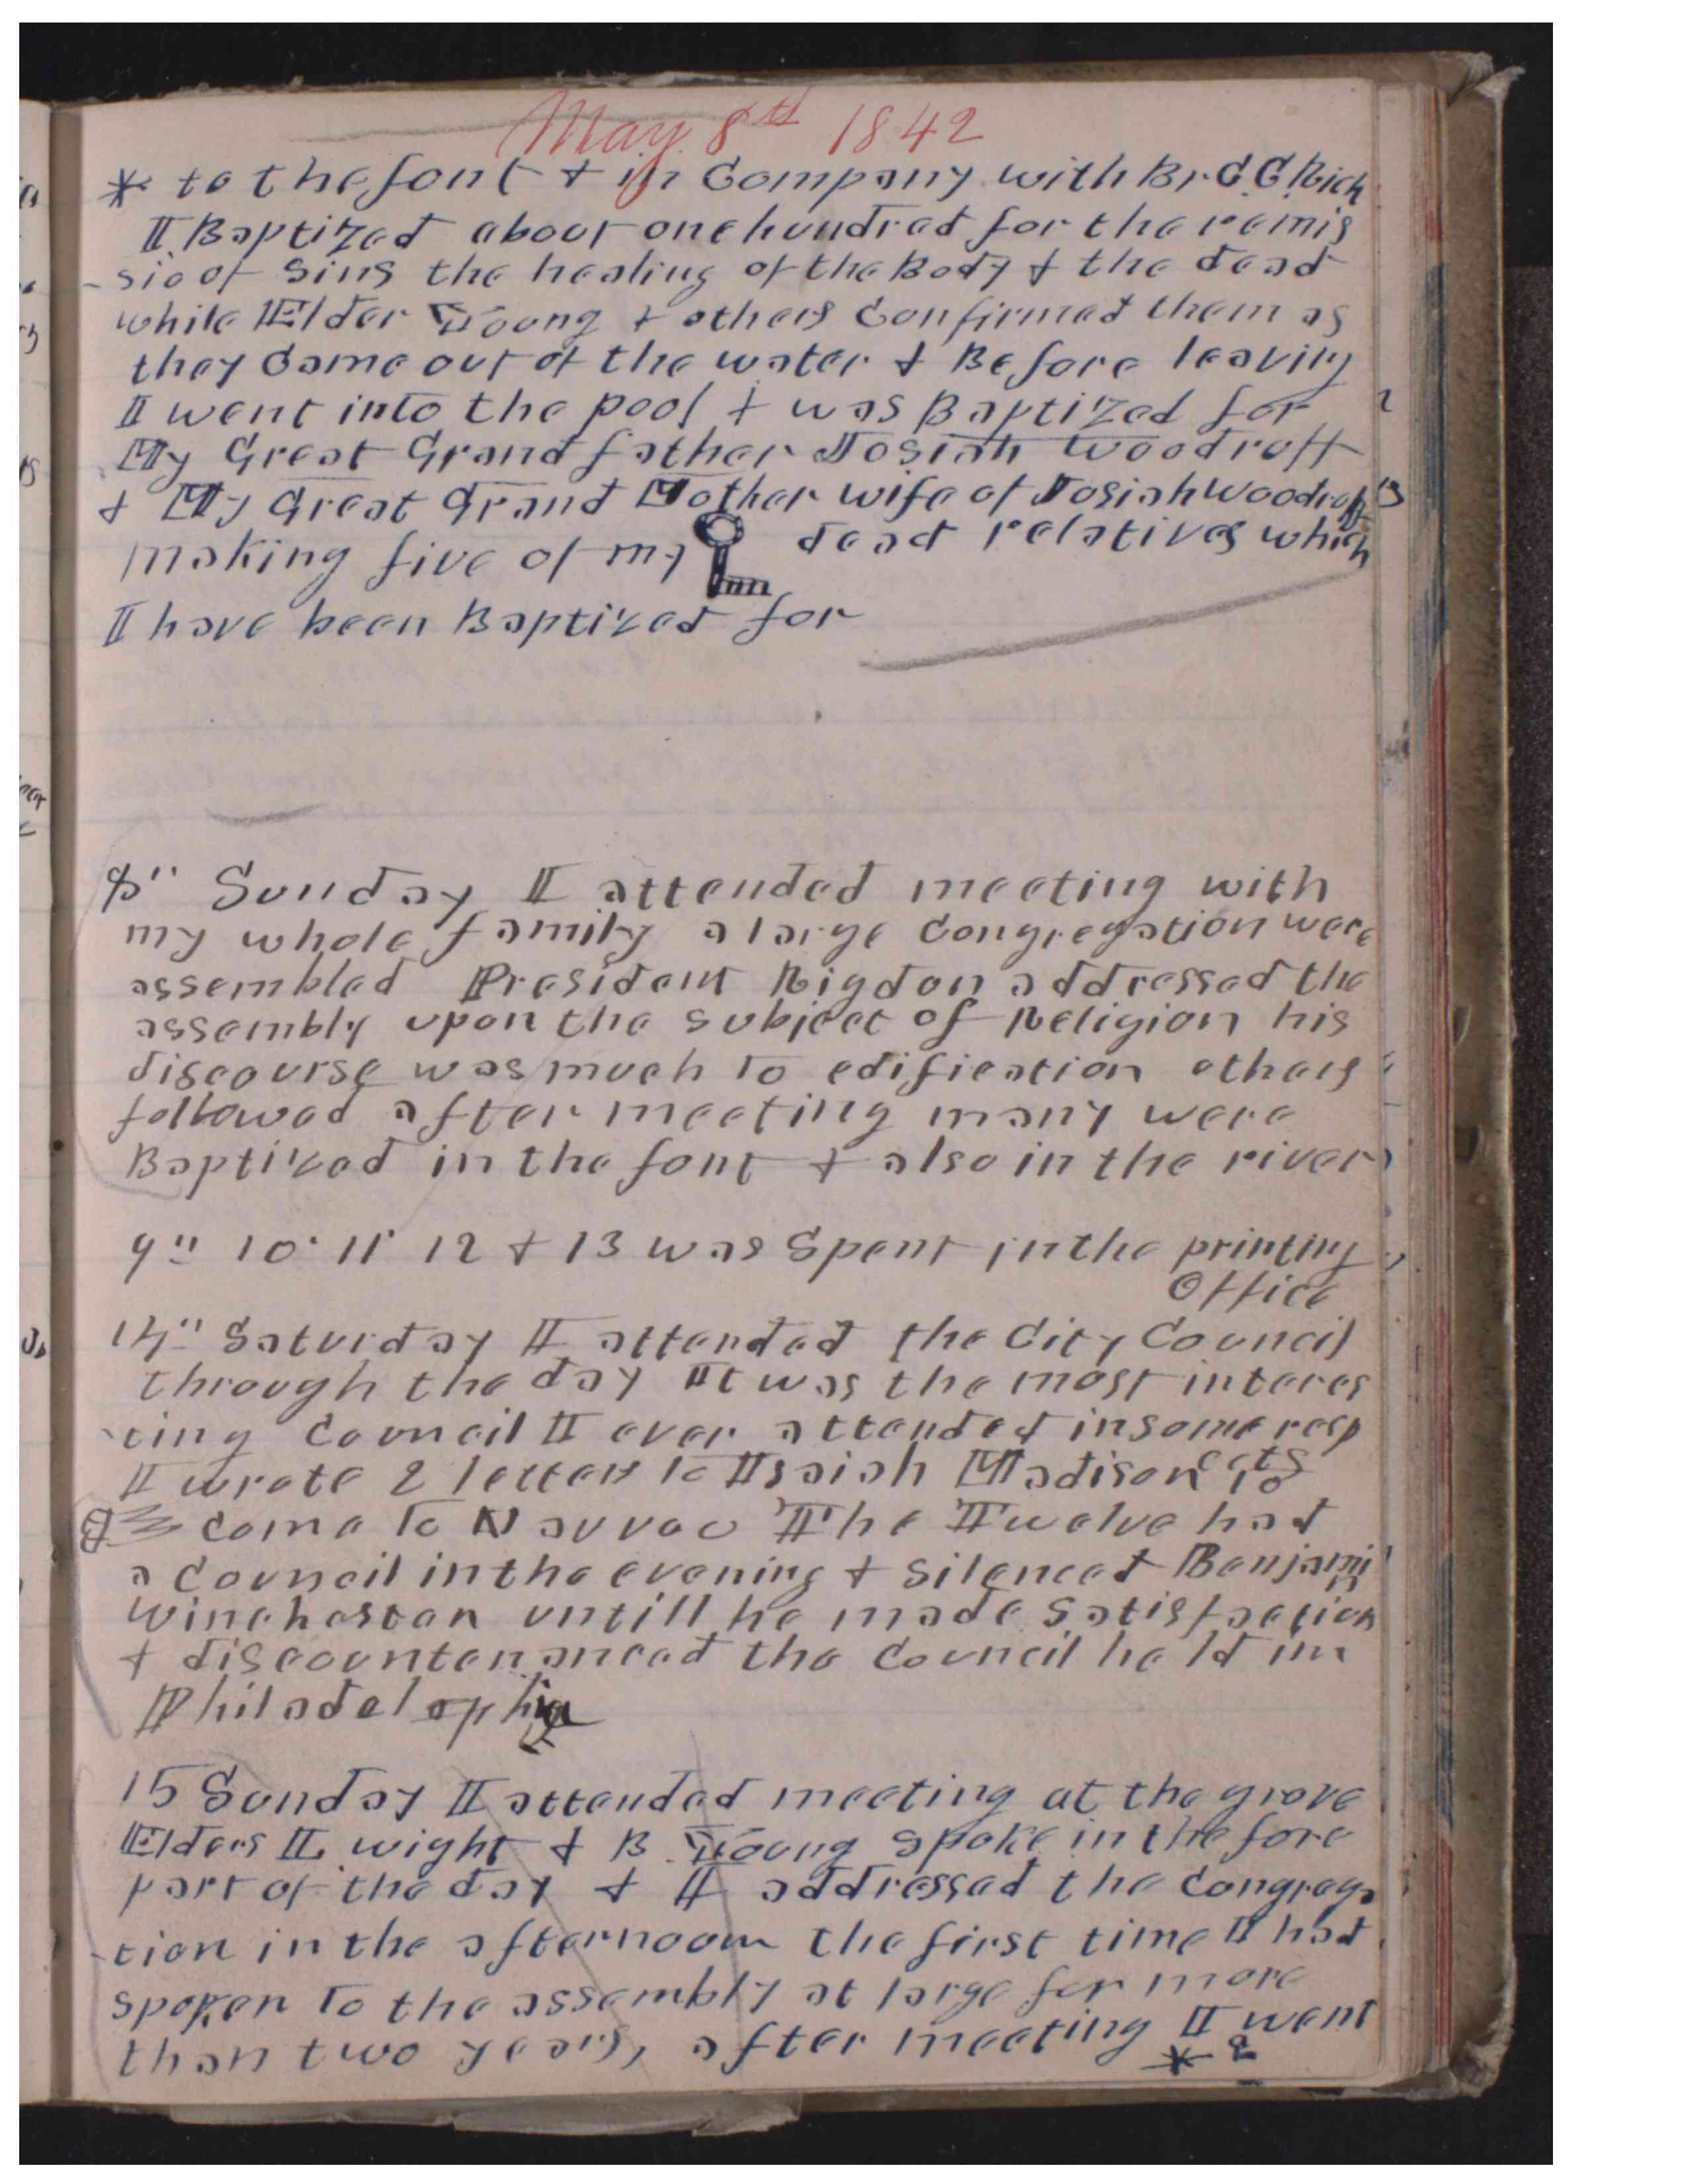 May 8th 1842
* to the font & in Company with Br C C Rich
I Baptized about one hundred for the remis
-sio of Sins the healing of the Body & the dead
while Elder Young & others Confirmed them as
they Came out of the water & Before leaving
I went into the pool & was Baptized for
My Great Grand father Josiah Woodruff
& My Great Grand Mother wife of Josiah Woodruff
making five of my dead relatives which
I have been Baptized for
8" Sunday I attended meeting with
my whole family a large Congregation were
assembled President Rigdon addressed the
assembly upon the subject of Religion his
discourse was much to edification others
followed after meeting many were
Baptized in the font & also in the river
9" 10 11 12 & 13 was Spent in the printing
Office
14" Saturday I attended the City Council
through the day It was the most interes
-ting Council I ever attended in some resp
ects
I wrote 2 letters to Asaiah Madison to
Come to Nauvoo The Twelve had
a Council in the evening & Silenced Benjamin
Winchester untill he made Satisfaction
& discountenanced the Council held in
Philadelphia
15 Sunday I attended meeting at the grove
Elders L wight & B Young Spoke in the fore
part of the day & I addressed the Congrega
-tion in the afternoon the first time I had
spoken to the assembly at large for more
than two years, after meeting I went
*